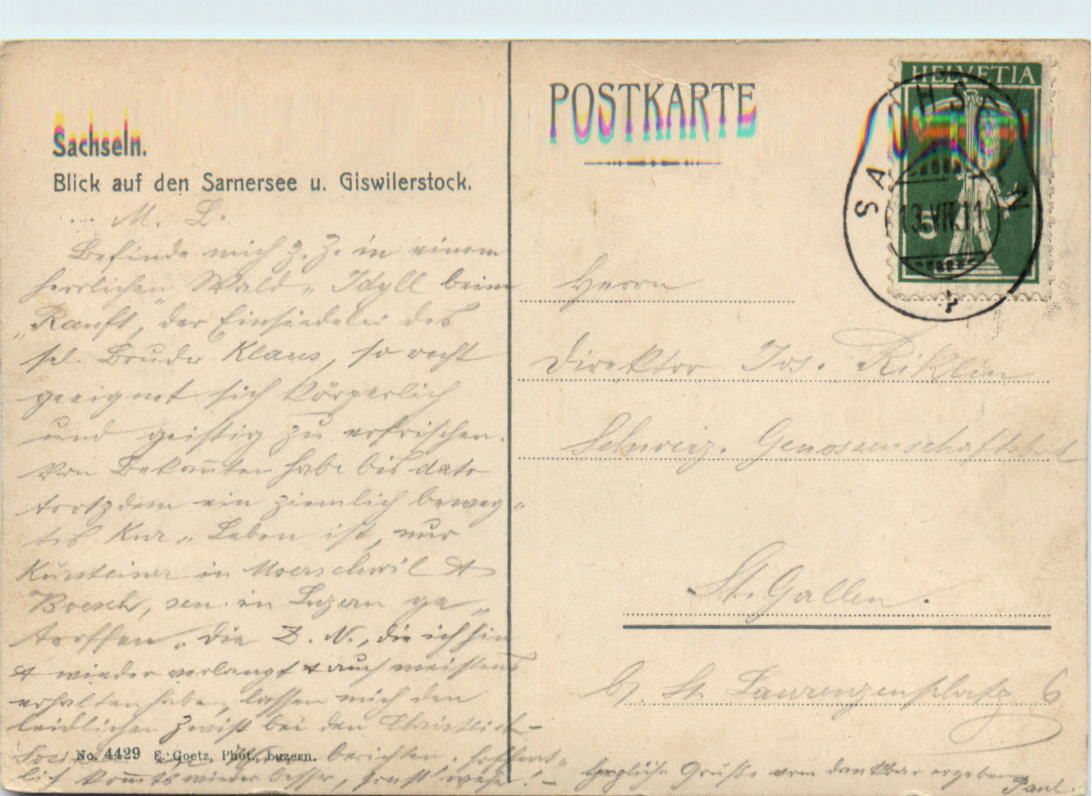 Sachseln.
Blick auf den Sarnersee u. Giswilerstock.
M. L.
Befinde mich z. Z. in einem
herrlichen Wald-Idyll beim
"Ranft, der Einsiedelei des
sel. Bruder Klaus, so recht
geeignet sich körperlich
und geistig zu erfrischen.
Von Bekannten habe bis dato
trotzdem ein ziemlich beweg-
tes Kur-Leben ist, nur
Kürsteiner in Moerschwil &
Boesch, sen. in Luzern ge-
troffen. Die Z. N., die ich hin
& wieder verlangt & auch meistens
erhalten habe, lassen mich den
leidlichen Zwist bei den Christlich-
berichten, hoffent-
lich kommts wieder besser,
No. 4429 E. Goetz, Phot., Luzern.
POSTKARTE
HELVETIA
5
SACHSELN
13.VII.11
Herrn
Direktor Jos. Riklin
Schweiz. Genossenschaftsbk
St. Gallen.
St. Laurenzenplatz 6
Herzliche Grüße vom dankbar ergebenen
Paul.